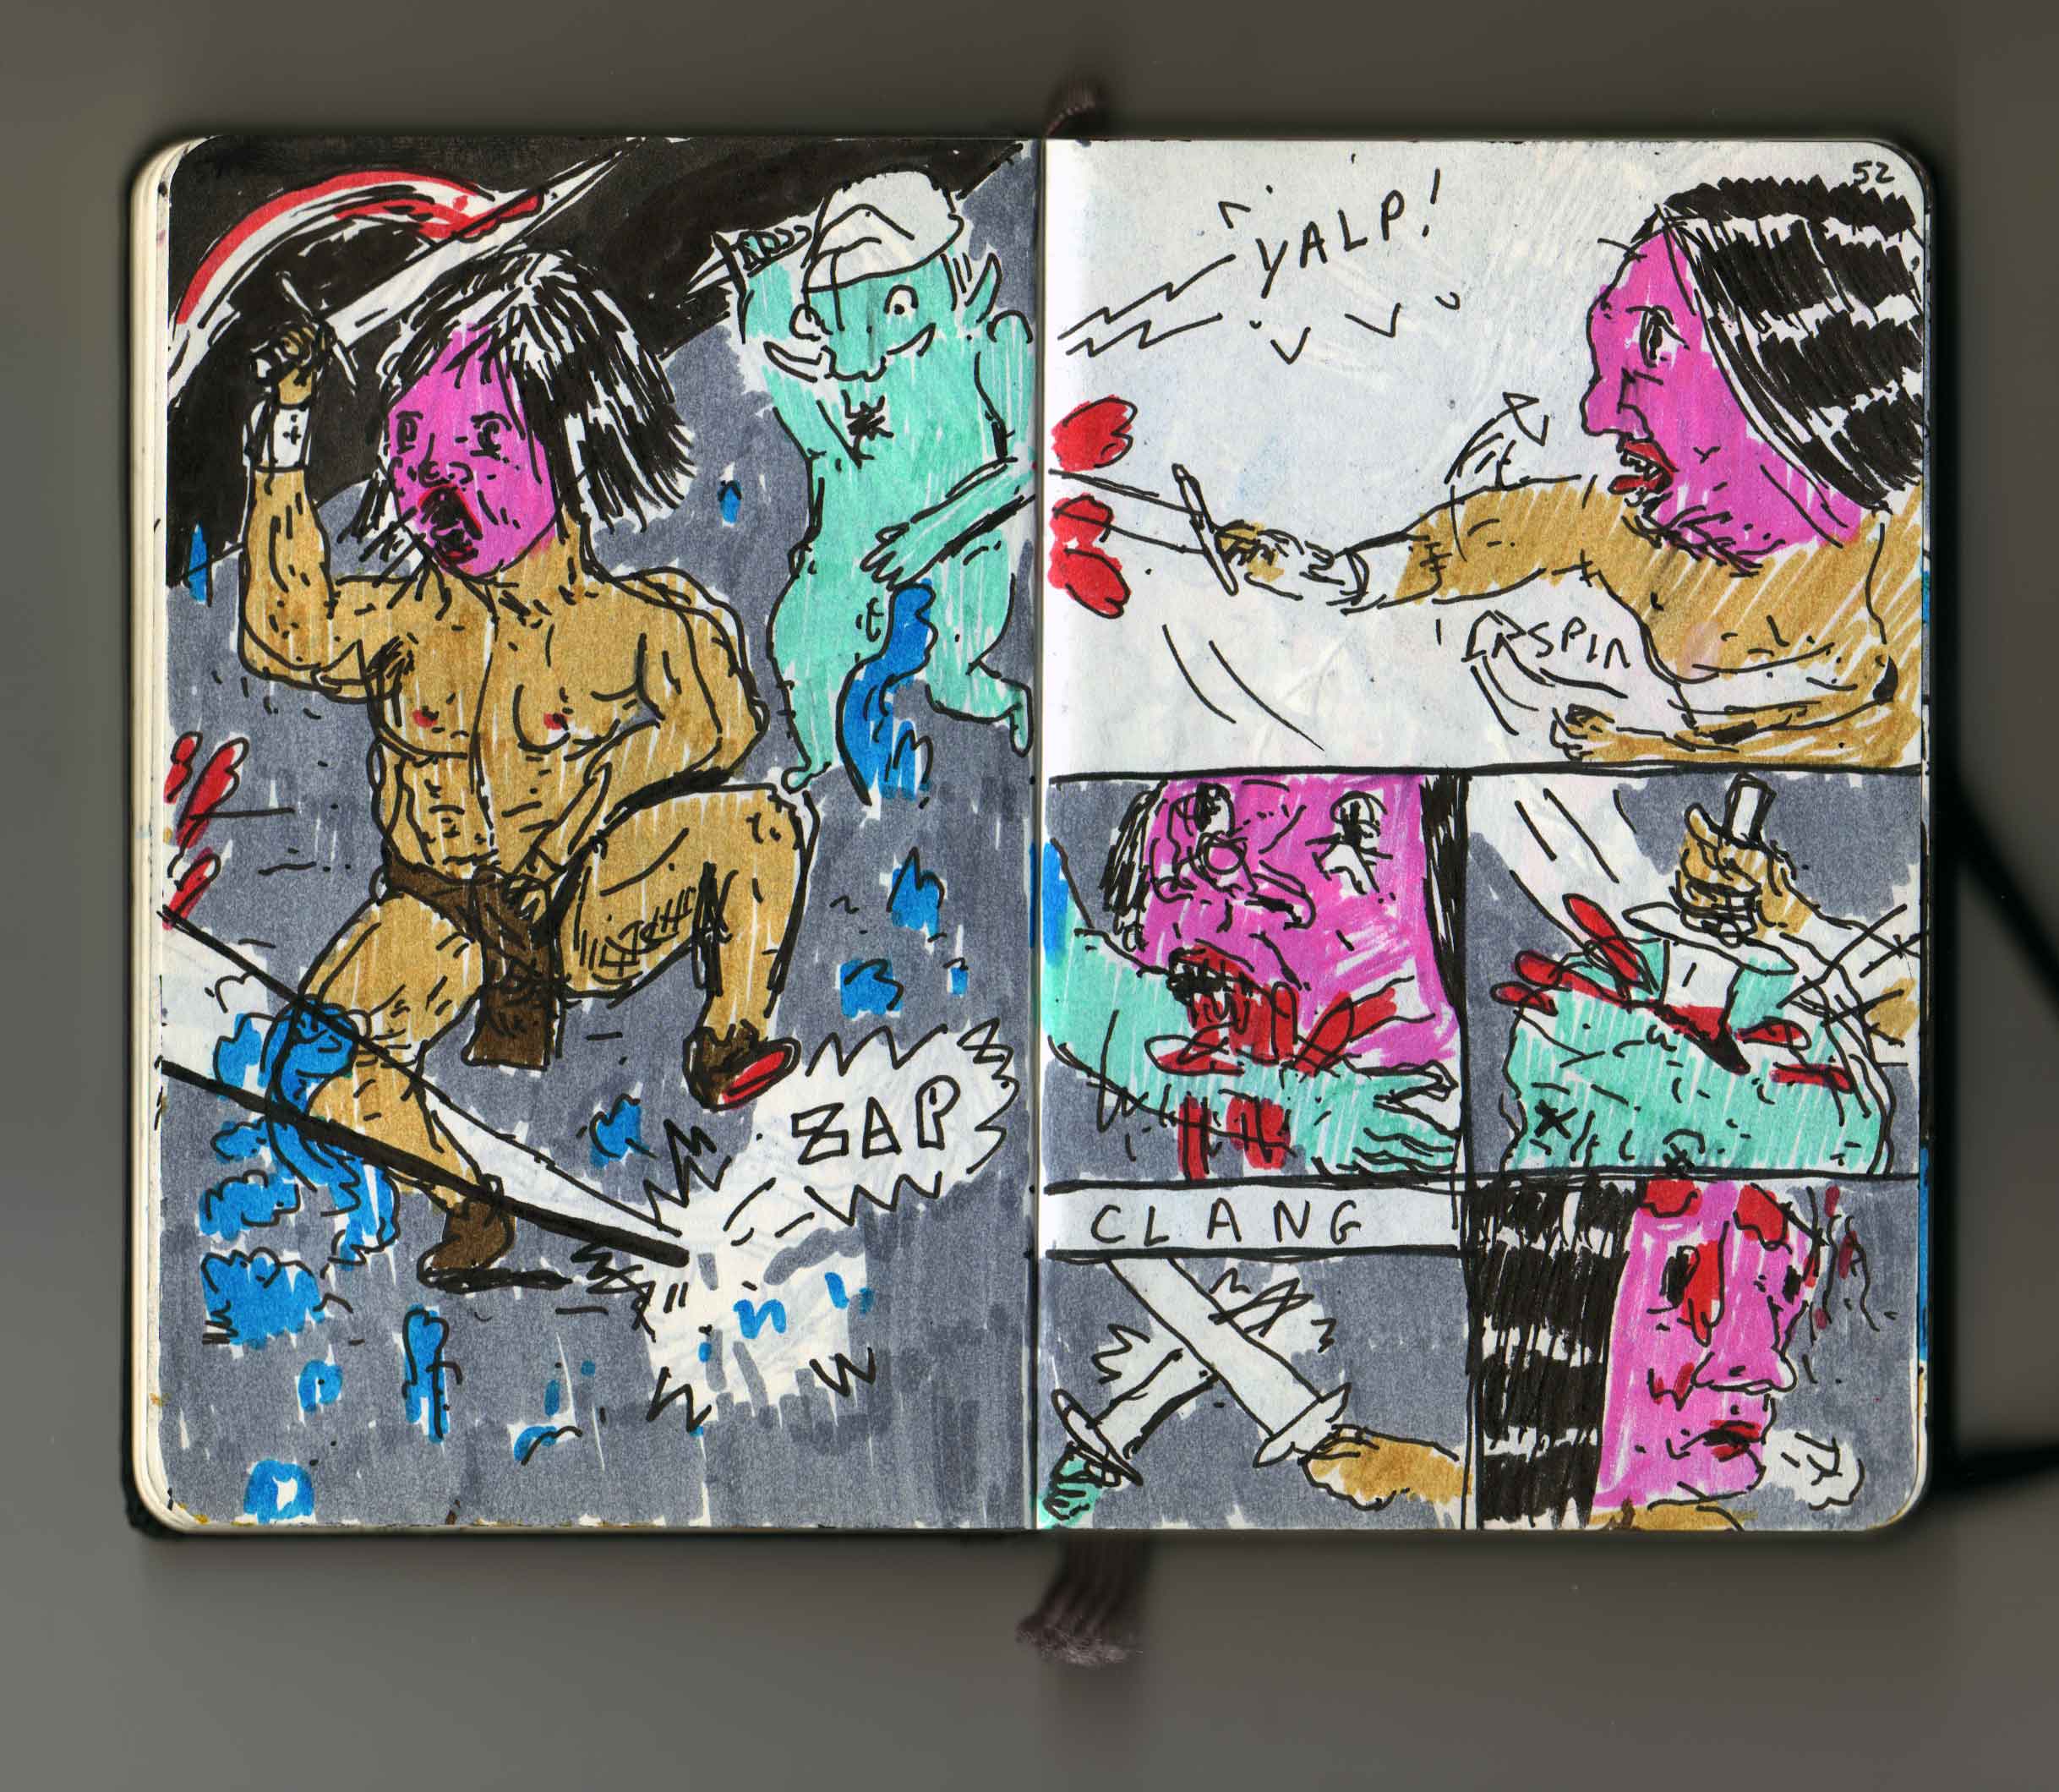 ZAP
52
YALP!
SPIN
CLANG